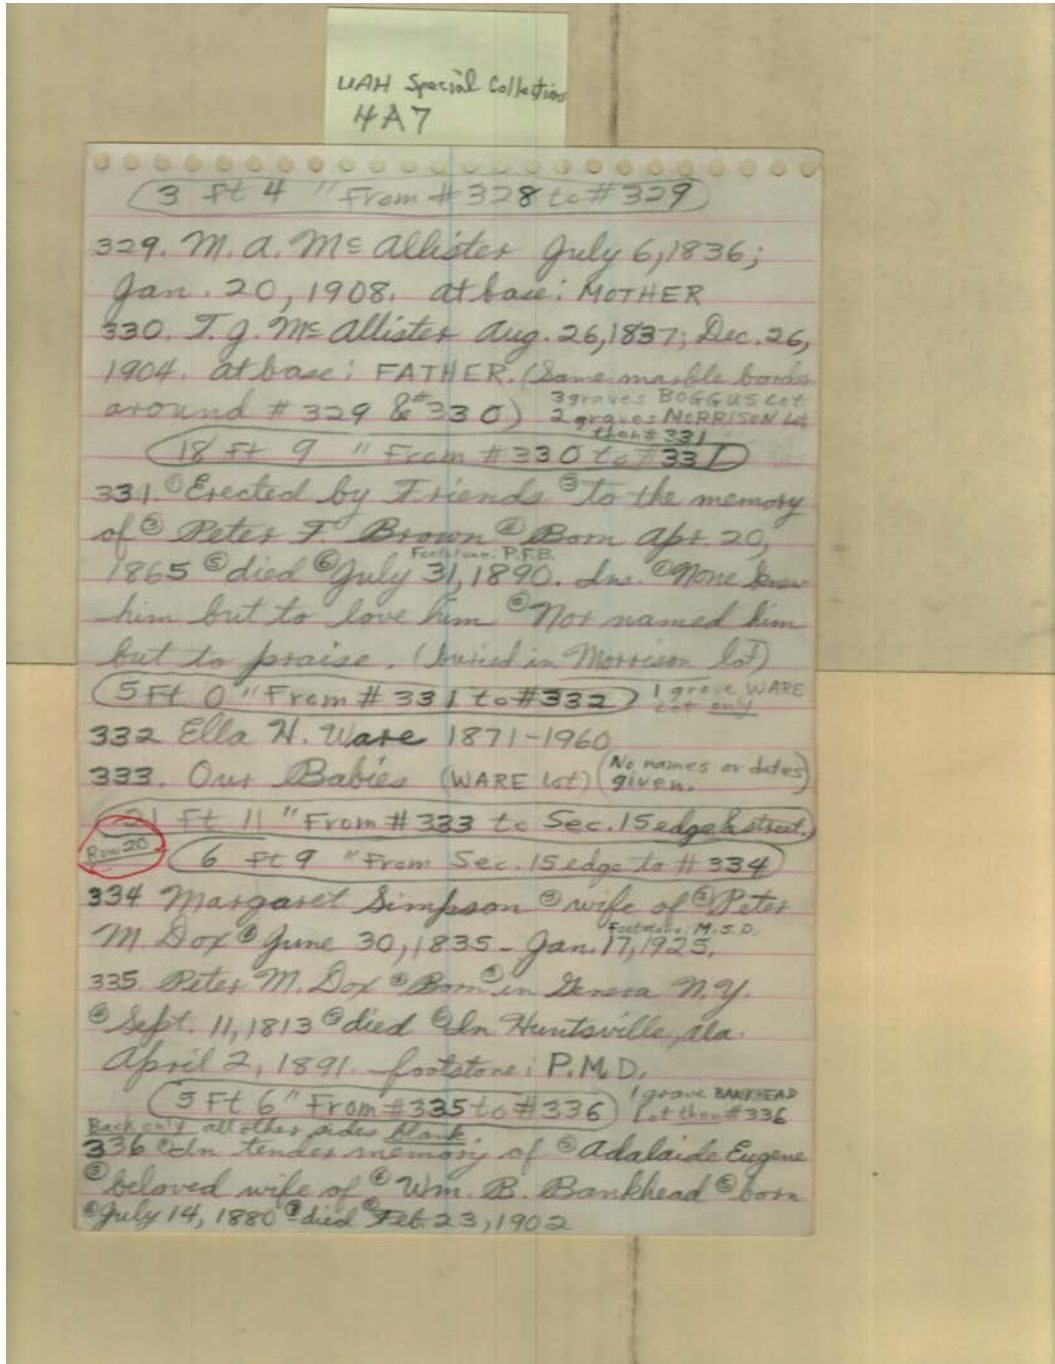 UAH Special Collections
4A7
3 ft 4 " From # 328 to # 329
329. M. A. Mc Allister July 6, 1836;
Jan. 20, 1908. at base: MOTHER
330. T. J. Mc Allister Aug. 26, 1837; Dec. 26,
1904. at base: FATHER. (Same marble border
around # 329 & # 330)
3 graves BOGGUS Lot
2 graves MORRISON Lot
then # 331
18 ft 9 " From # 330 to # 331
331. ① Erected by Friends ② To the memory
of ③ Peter F. Brown ④ Born Apr. 20,
Footstone: P.F.B.
1865 ⑤ died ⑥ July 31, 1890. Ins. ⑦ None knew
him but to love him ⑧ Nor named him
but to praise. (buried in Morrison lot)
5 Ft 0 " From # 331 to # 332
1 grave WARE
Lot only
332 Ella H. Ware 1871-1960
333. Our Babies (WARE Lot) (No names or dates given.)
21 ft 11 " From # 333 to Sec. 15 edge & street.
Row 20
6 ft 9 " From Sec. 15 edge to # 334
334 Margaret Simpson ② wife of ③ Peter
Footstone: M.S.D.
M. Dox ④ June 30, 1835 - Jan. 17, 1925.
335. Peter M. Dox ② Born ③ in Geneva N.Y.
④ Sept. 11, 1813 ⑤ died ⑥ In Huntsville, Ala.
April 2, 1891. footstone: P.M.D.
5 Ft 6 " From # 335 to # 336
1 grave BANKHEAD
Lot then # 336
Back only all other sides blank.
336 ① In tender memory of ② Adalaide Eugene
③ beloved wife of ④ Wm. B. Bankhead ⑤ born
⑥ July 14, 1880 ⑦ died ⑧ Feb. 23, 1902